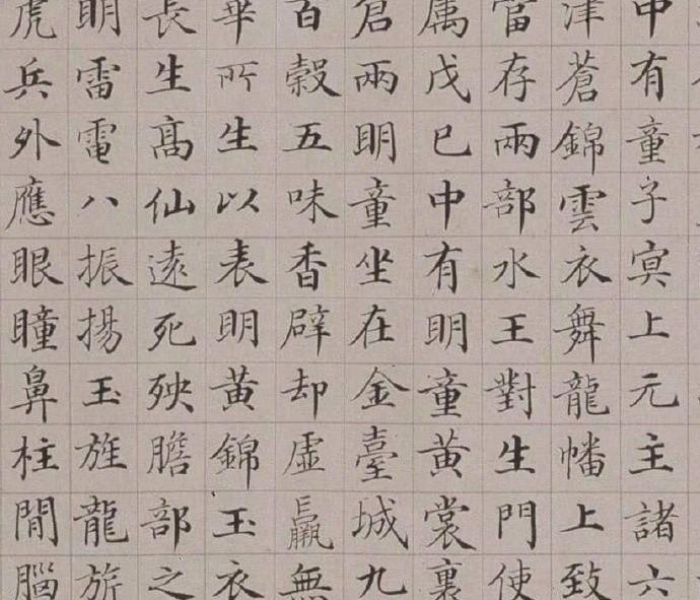 中有童子冥上元主諸六
津蒼錦雲衣舞龍幡上致
當存兩部水王對生門使
属戊巳中有明童黃裳裏
倉兩明童坐在金臺城九
百穀五味香辟却虛羸無
華所生以表明黃錦玉衣
長生髙仙遠死殃膽部之
明雷電八振揚玉旌龍旂
虎兵外應眼瞳鼻柱閒腦